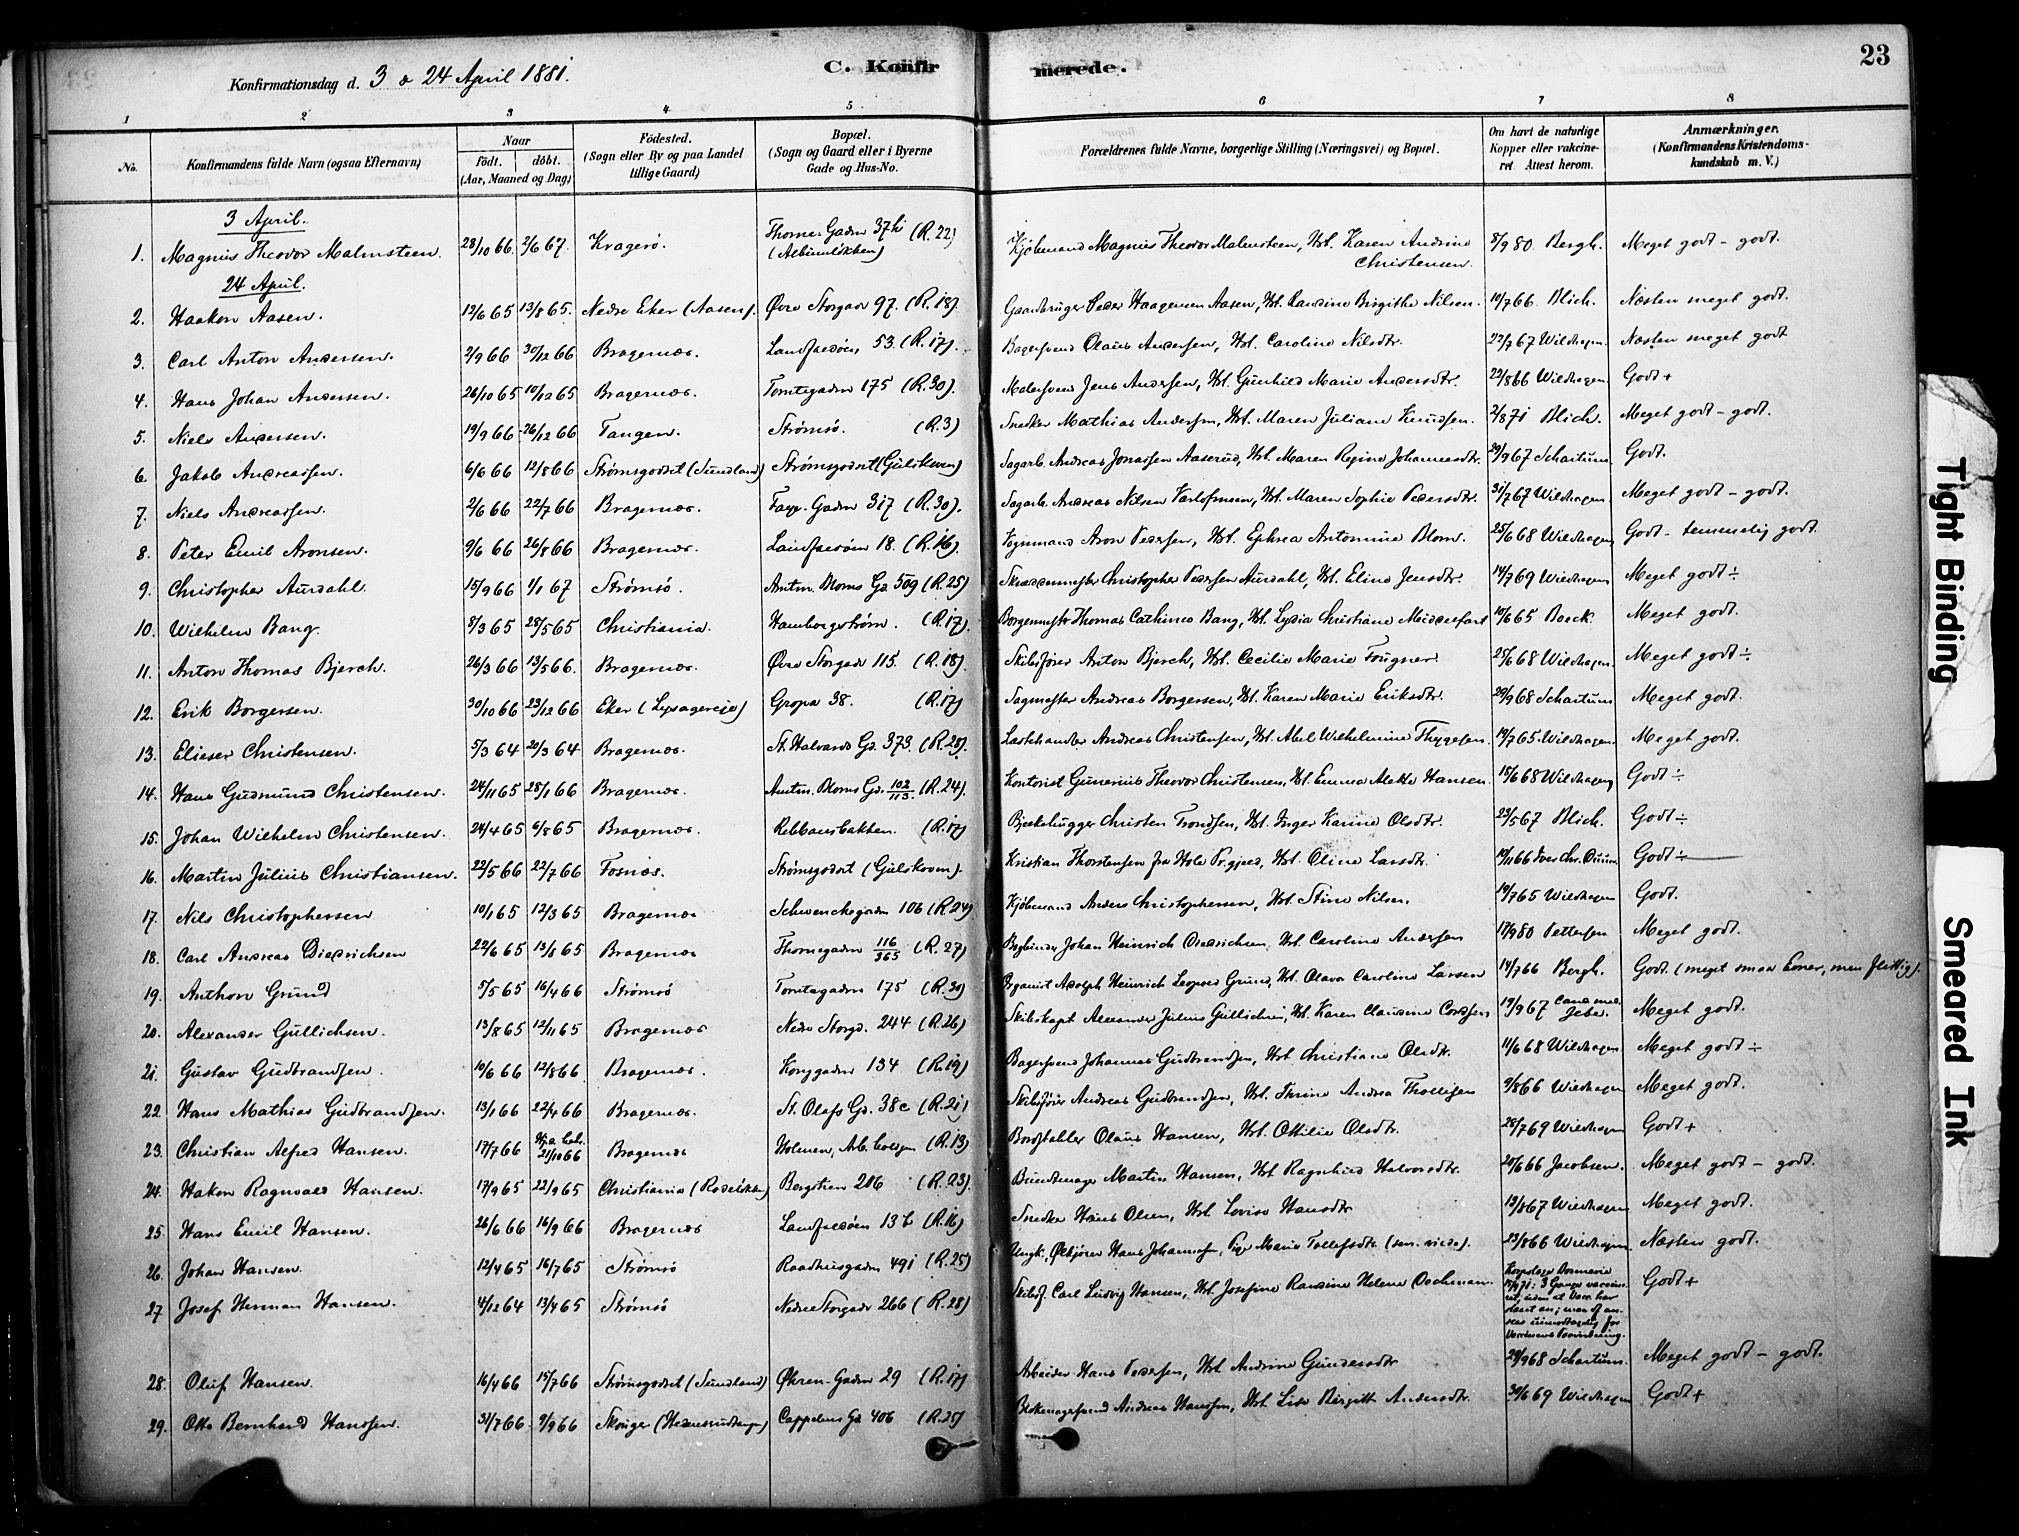 Konfirmationsdag d. 3 & 24 April 1881.
C. Konfirmerede.
23
1 2 3 4 5 6 7 8
No. Konfirmandens fulde Navn (ogsaa Efternavn) Naar födt. döbt. (Aar, Maaned og Dag) Födested. (Sogn eller By og paa Landet tillige Gaard) Bopæl. (Sogn og Gaard eller i Byerne Gade og Hus-No. Forældrenes fulde Navne, borgerlige Stilling (Næringsvei) og Bopæl. Om havt de naturlige Kopper eller vaccineret. Attest herom. Anmærkninger. (Konfirmandens Kristendomskundskab m. V.)
3 April.
1. Magnus Theodor Malmsteen. 28/10 66 2/6 67. Kragerø. Thornes Gaden (R. 22) (Albumløkken) Kjøbmand Magnus Theodor Malmsteen, Hst. Karen Andrine Christensen. 8/9 80. Bergh. Meget godt - godt.
24 April.
2. Haakon Aasen. 12/6 65 13/8 65. Nedre Eker (Aasen). Øvre Storgade 97. (R. 18). Gaardbruger Peder Haagensen Aasen, Hst. Randine Birgithe Nilsen. 10/7 66. Blich. Næsten meget godt.
3. Carl Anton Andersen. 2/9 66 30/12 66 Bragernæs. Landfaldøen 53. (R. 17). Bagersvend Olaus Andersen, Hst. Caroline Nilsdtr. 22/7 67 Wildhagen. Næsten meget godt
4. Hans Johan Andersen. 26/10 65 10/12 65 Bragernæs. Tomtegaden 175 (R. 30). Malersvend Jens Andersen, Hst. Gunhild Marie Andersdtr. 22/8 66 Wildhagen. Godt +
5. Niels Andersen. 19/9 66 26/12 66 Tangen. Strømsø. (R. 3) Snedker Mathias Andersen, Hst. Maren Juliane Knudsen. 2/8 71 Blich. Meget godt - godt.
6. Jakob Andreassen. 6/6 66 12/8 66 Strømsgodset (Sundland) Strømsgodset (Gulskoven) Sagarb. Andreas Jonassen Aaserud, Hst. Maren Regine Johannesdtr. 29/9 67 Schartum. Godt.
7. Niels Andreassen. 2/6 66 22/7 66 Bragernæs. Gaden 317 (R. 30). Sagarb. Andreas Nilsen, Hst. Maren Sophie Pedersdtr. 31/7 67 Wildhagen Meget godt - godt.
8. Peter Emil Aronsen. 9/6 66 26/8 66 Bragernæs. Landfaldøen 18. (R. 16). Vognmand Aron Pedersen, Hst. Ephrea Antonnine Blom. 25/6 68 Wildhagen Godt - temmelig godt.
9. Christopher Aurdahl. 15/9 66 1/1 67 Strømsø. Amtm. Bloms Gd. 509 (R. 25) Skræddermester Christopher Pedersen Aurdahl, Hst. Eline Jensdtr. 14/7 69 Wildhagen Meget godt ÷
10. Wilhelm Bang. 8/3 65 28/5 65 Christiania. Hamborgstrøm. (R. 17). Borgermester Thomas Cathinco Bang, Hst. Lydia Christiane Middelfart 10/6 65 Boeck. Meget godt.
11. Anton Thomas Bjerch. 26/3 66 13/5 66. Bragernæs. Øvre Storgade 115. (R. 18). Skibsfører Anton Bjerch, Hst. Cecilie Marie Fougner. 25/6 68 Wildhagen. Meget godt ÷
12. Erik Borgersen. 30/10 66 23/12 66 Eker Gropa 38. (R. 17) Sagmester Andreas Borgersen, Hst. Karen Marie Eriksdtr. 29/9 68 Schartum Meget godt.
13. Elieser Christensen. 5/3 64 20/3 64 Bragernæs. St. Halvards Gd. 373. (R. 20). Lasthandler Andreas Christensen, Hst. Abel Wilhelmine Thygesen. 19/7 65. Wildhagen. Meget godt.
14. Hans Gudmund Christensen. 24/11 65 28/1 66 Bragernæs. Amtm. Bloms Gd. 102/113. (R. 24). Kontorist Gunerius Theodor Christensen, Hst. Emma Alette Hansen 15/6 68 Wildhagen Godt ÷
15. Johan Wilhelm Christensen. 24/4 65 6/8 65 Bragernæs. Rebbansbakken. (R. 17) Bjelkehugger Christen Trondsen, Hst. Inger Karine Olsdtr. 23/5 67 Blich. Godt ÷
16. Martin Julius Christiansen. 22/5 66 22/7 66 Fosnæs. Strømsgodset (Gulskoven). Kristian Thorstensen fra Hole Prgjeld, Hst. Oline Larsdtr. 19/11 66 Godt ÷
17. Nils Christophersen 10/1 65 12/3 65 Bragernæs Schwenckegaden 106 (R. 24) Kjøbmand Anders Christophersen, Hst. Stine Nilsen. 19/7 65 Wildhagen Godt.
18. Carl Andreas Diedrichsen 22/6 65 13/8 65 Bragernæs Thornegaden 116/365 (R. 27) Bogbinder Johan Heinrich Diedrichsen, Hst. Caroline Andersen 17/9 80 Pettersen Meget godt.
19. Anthon Grund 5/5 65 16/4 66 Strømsø Tomtegaden 175 (R. 30) Organist Adolph Heinrich Leopold Grund, Hst. Olava Caroline Larsen 14/7 66 Bergh. Godt. (meget smaa Evner, men flittig).
20. Alexander Gullichsen. 13/8 65 12/11 65 Bragernæs Nedre Storgd. 244 (R. 26) Skibskapt. Alexander Julius Gullichsen, Hst. Karen Claudine Cordsen 19/9 67 Meget godt.
21. Gustav Gudbrandsen. 10/6 66 12/8 66 Bragernæs. Konggaden 134 (R. 19) Bagersvend Johannes Gudbrandsen, Hst. Christiane Olsdtr. 11/6 68 Wildhagen Meget godt ÷
22. Hans Mathias Gudbrandsen. 13/1 66 22/4 66 Bragernæs. St. Olafs Gd. 38c (R. 21) Skibsfører Andreas Gudbrandsen, Hst. Trine Andrea Thollefsen 9/8 66 Wildhagen Meget godt.
23. Christian Alfred Hansen. 17/7 66 21/10 66 Bragernæs Holmen, Arb. bolgen (R. 13) Bordstabler Olaus Hansen, Hst. Ottilie Olsdtr. 28/7 69 Wildhagen Godt +
24. Hakon Ragnvald Hansen. 17/9 65 22/9 65 Christiania (Roseløkken) Bergstien 216 (R. 23) Buntmager Martin Hansen, Hst. Ragnhild Halvorsdtr. 20/6 66 Jacobsen. Meget godt - godt.
25. Hans Emil Hansen. 26/6 66 16/9 66 Bragernæs Landfaldøen 13b (R. 16) Snedker Hans Olsen, Hst. Lovise Hansdtr 12/8 67 Wildhagen Meget godt.
26. Johan Hansen. 12/4 65 16/7 65 Strømsø Raadhusgaden 491 (R. 25) Ungk. Ølkjører Hans Johannesen, Pige Marie Tollefsdtr. 13/8 66 Wildhagen. Næsten godt.
27. Josef Herman Hansen. 4/12 64 13/4 65 Strømsø Nedre Storgade 266 (R. 28) Skibsf. Carl Ludvig Hansen, Hst. Josefine Randine Helene 3 Gange vaccineret, uden at Godt +
28. Oluf Hansen. 16/4 66 15/7 66 Strømsgodset (Sundland) Øhren-Gaden 29 (R. 17) Arbeider Hans Pedersen, Hst. Andrine Gundersdtr 29/9 68 Schartum. Meget godt - godt.
29. Otto Bernhard Hanssen. 31/7 66. 9/9 66 Skouger Cappelens Gd. 406 (R. 25) Andreas Hanssen, Hst. Lise Birgitte Andersdtr. 30/6 69 Wildhagen Godt +
Tight Binding
Smeared Ink